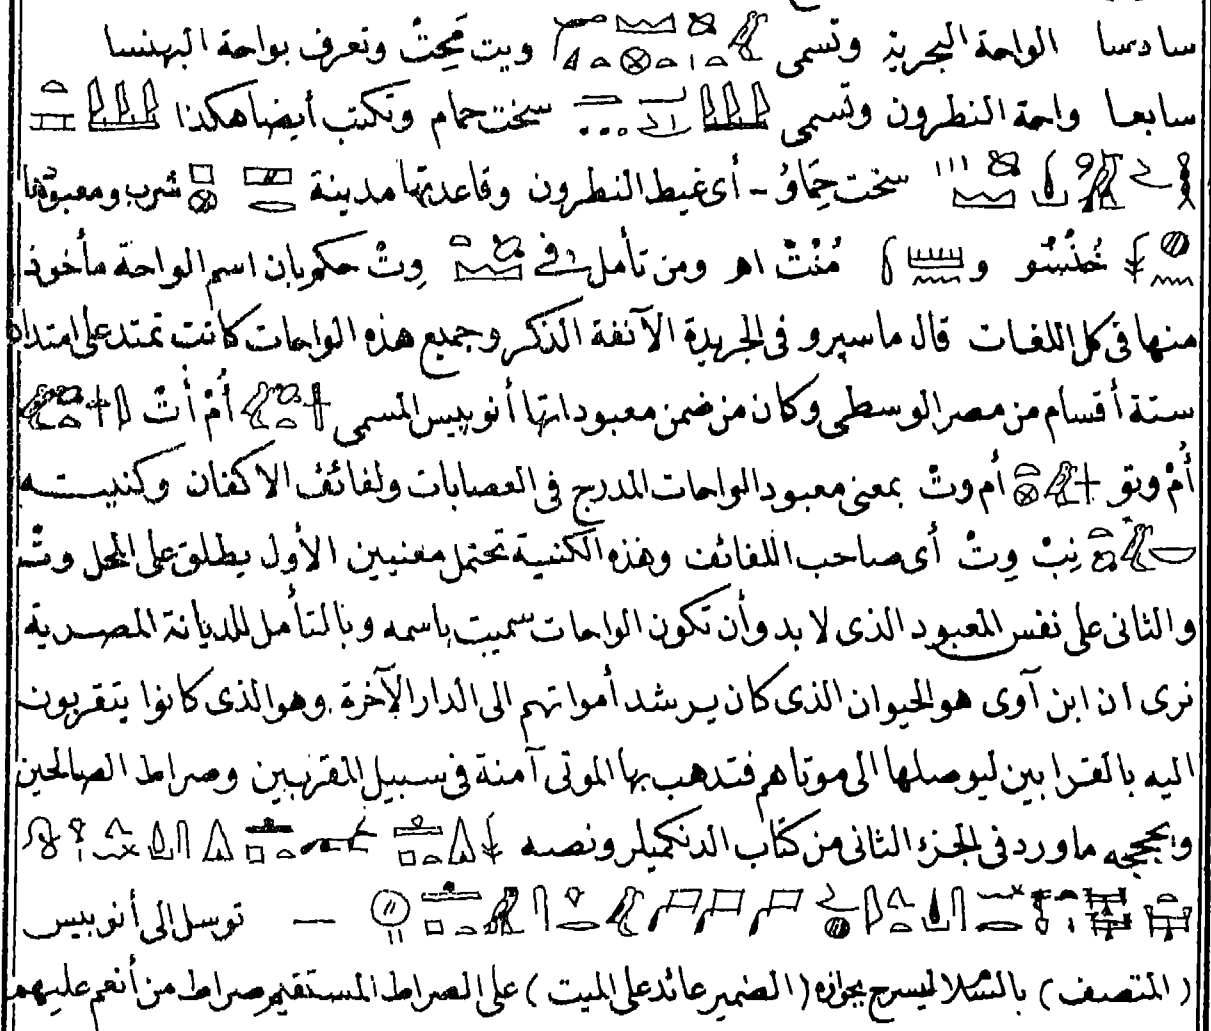 سادسا الواحة البحرية وتسمى ويت مَحِتْ وتعرف بواحة البهنسا
سابعا واحة النطرون وتسمى سخت حمام وتكتب أيضا هكذا
سخت حِمَاوُ - أى غيط النطرون وقاعدتها مدينة شرب ومعبودها
خُنْسُو و مُنْتْ اهر ومن تأمل فى وِتْ حكم بان اسم الواحة مأخوذ
منها فى كل اللغات قال ماسپرو فى الجريدة الآنفة الذكر وجميع هذه الواحات كانت تمتد على امتداد
ستة أقسام من مصر الوسطى وكان من ضمن معبوداتها أنوبيس المسمى أُمْ أُتْ
أُمْ وتو أم وتْ بمعنى معبود الواحات المدرج فى العصابات ولفائف الاكفان وكنيسته
نِبْ وِتْ أى صاحب اللفائف وهذه الكنية تحتمل معنيين الأول يطلق على المحل
والثانى على نفس المعبود الذى لا بد وأن تكون الواحات سميت باسمه وبالتأمل للديانة المصرية
نرى ان ابن آوى هو الحيوان الذى كان يرشد أمواتهم الى الدار الآخرة وهو الذى كانوا يتقربون
اليه بالقرابين ليوصلها الى موتاهم فتذهب بها الموتى آمنة فى سبيل المقربين وصراط الصالحين
ما ورد فى الجزء الثانى من كتاب الدنكميلر ونصه
— توسل الى أنوبيس
(المتصف) ليسرح بجوازه (الضمير عائد على الميت) على الصراط المستقيم صراط من أنعم عليهم